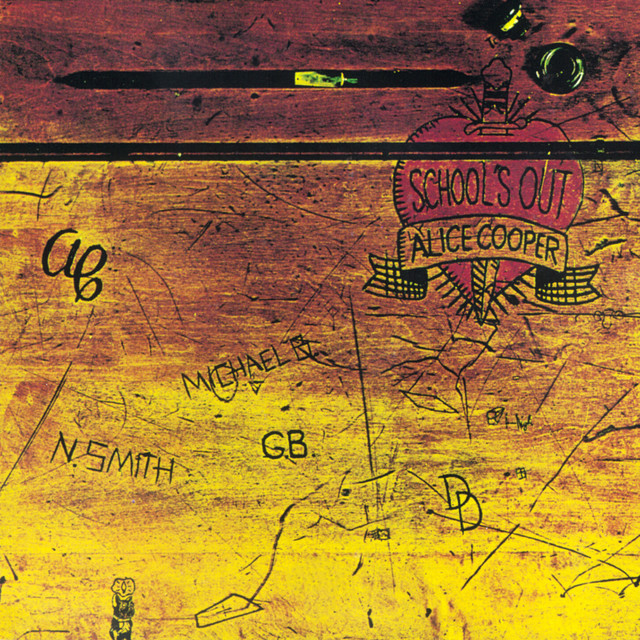 SCHOOL'S OUT
ALICE COOPER
ac
MICHAEL B
G.B.
N. SMITH
DD